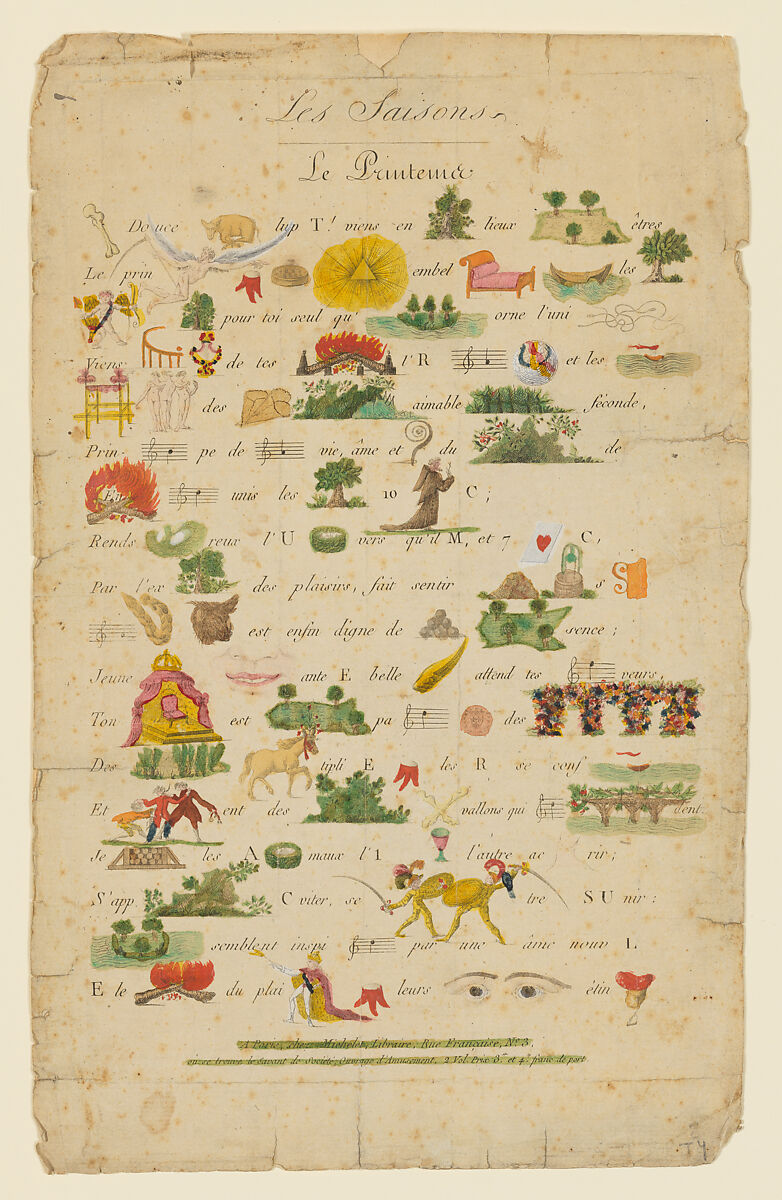 Les Saisons.
Le Printems
Douce lup T! viens en lieux êtres
Le prin embel les
pour toi seul qu' orne l'uni
Viens de tes l'R et les
des aimable féconde,
Prin pe de vie, âme et du de
unis les 10 C;
Rends reux l'U vers qu'il M, et 7 C,
Par l'ex des plaisirs, fait sentir s S
est enfin digne de sence;
Jeune ante E belle attend tes veurs,
Ton est pa des
Des tipli E les R se conf
Et ent des vallons qui dent.
Je les A maux l'1 l'autre ac rir;
S'app C viter, se tre S U nir:
semblent inspi par une âme nouv L
E le du plai leurs étin
A Paris, chez Michelet, Libraire, Rue Française, N° 3,
où se trouve le Savant de Société, Ouvrage d'Amusement, 2 Vol. Prix 3f et 4f franc de port